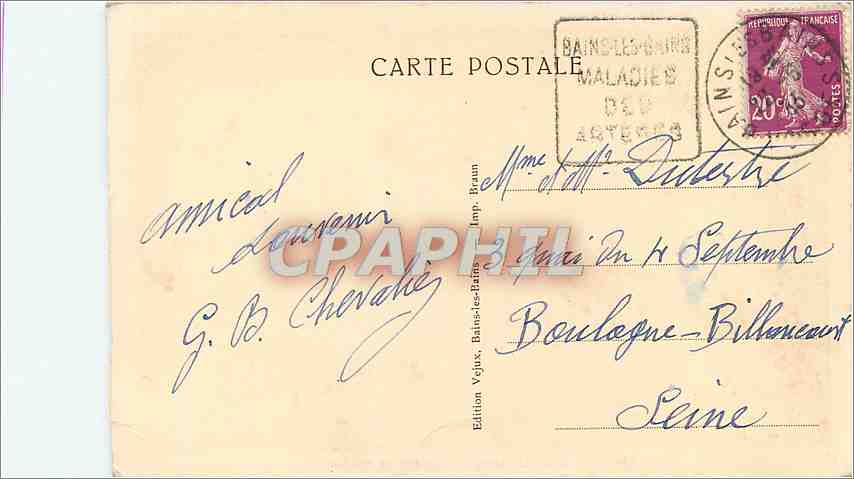 CARTE POSTALE
BAINS-LES-BAINS
MALADIES
DES
ARTERES
REPUBLIQUE FRANCAISE
20c
POSTES
BAINS-LES-BAINS
Amical
souvenir
G. B. Chevalier
CPAPHIL
Edition Vejux, Bains-les-Bains, Imp. Braun
Mme et Mr Dutertre
3 quai du 4 Septembre
Boulogne-Billancourt
Seine